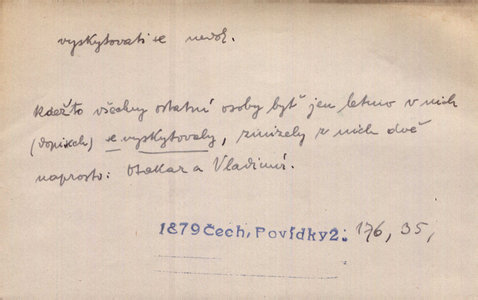 vyskytovati se nedok.
kdežto všechny ostatní osoby byť jen letmo v nich
(dopisech) se vyskytovaly, zmizely z nich dvě
naprosto: Otakar a Vladimír.
1879 Čech, Povídky 2. 176, 35,